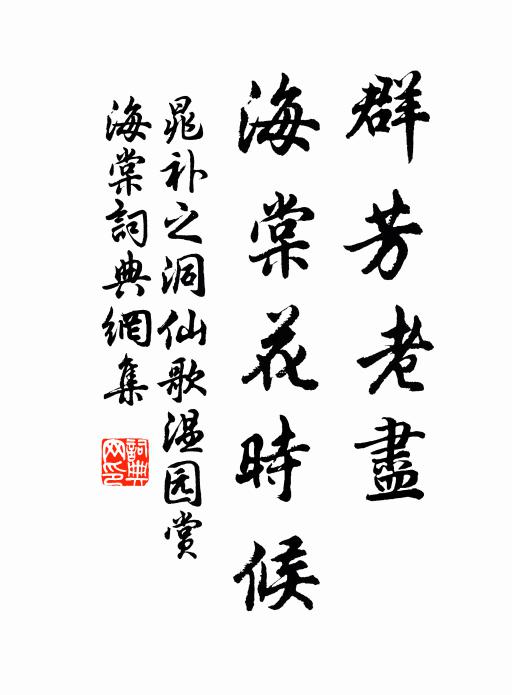 群芳老盡
海棠花時候
晁补之洞仙歌温园赏
海棠詞典網集
詞典网印